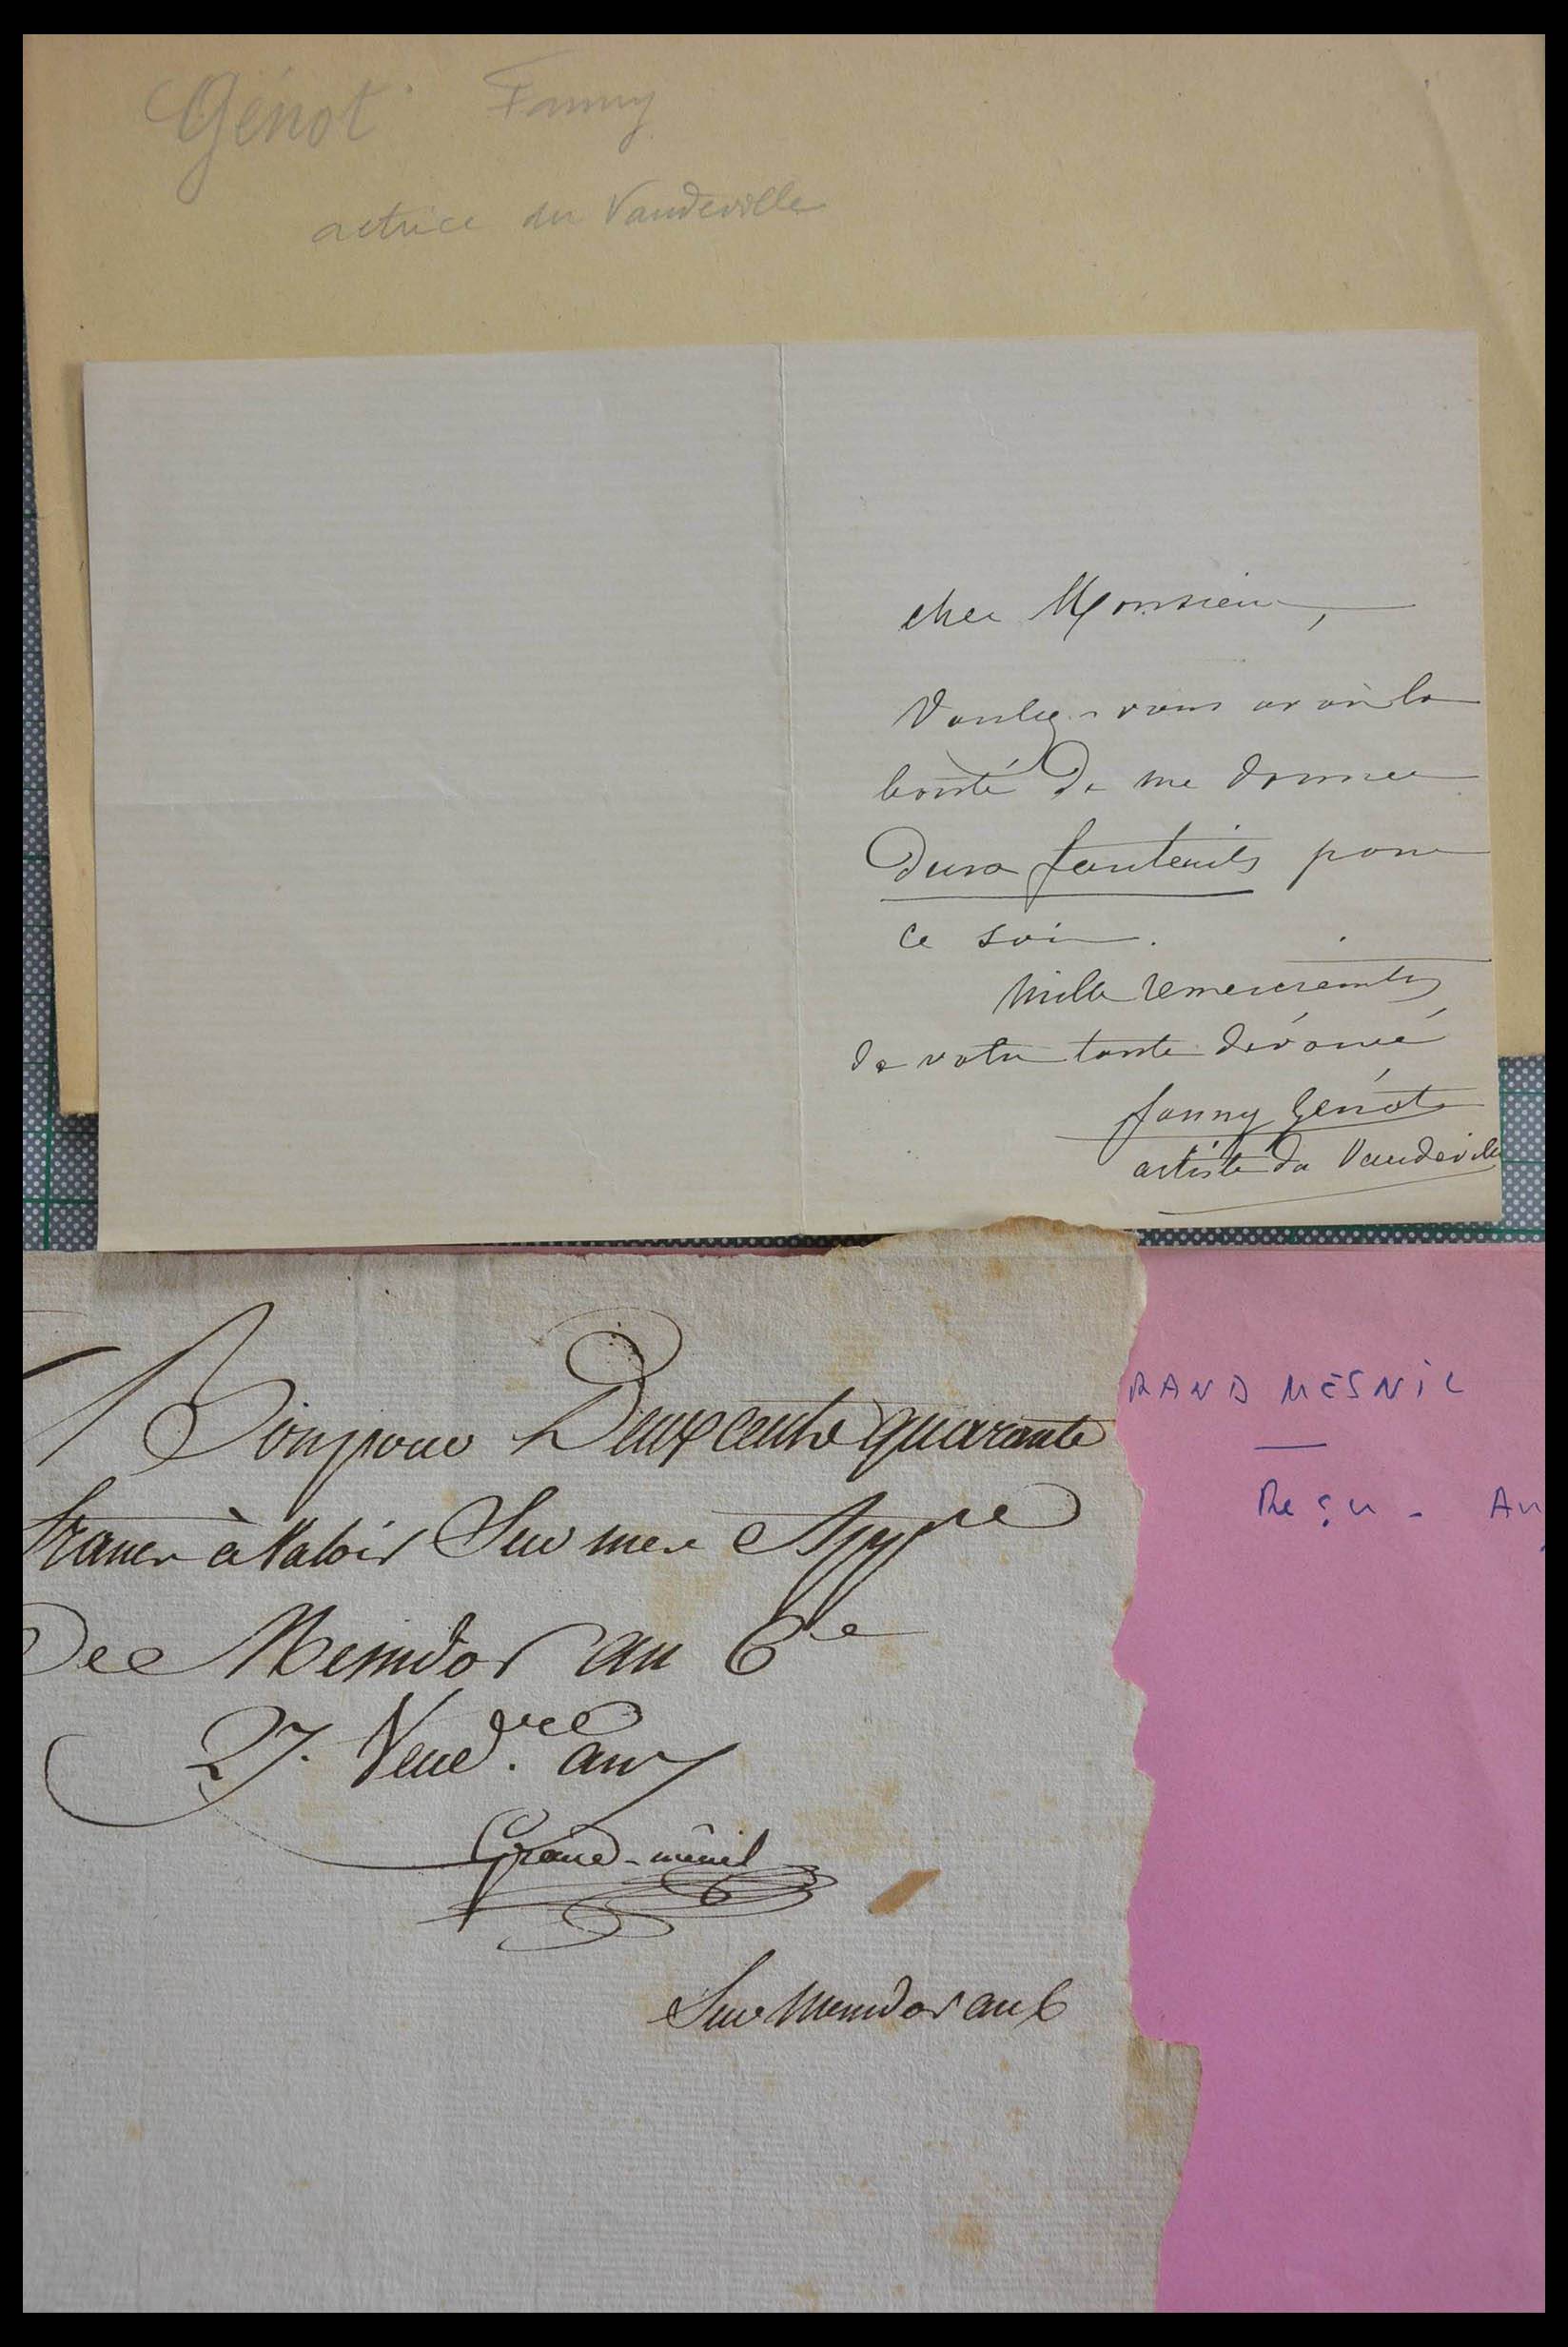 Génot Fanny
actrice du Vaudeville
cher Monsieur,
Voulez-vous avoir la
bonté de me donner
deux fauteuils pour
ce soir.
Mille remerciements
de votre toute dévouée
Fanny Génot
artiste du Vaudeville
Bon pour Deux cents quarante
francs à Valoir Sur mes
De Messidor an 6e
27. Vend.re an 7
Grand-ménil
Sur Messidor an 6
RAND MESNIL
Reçu - Au